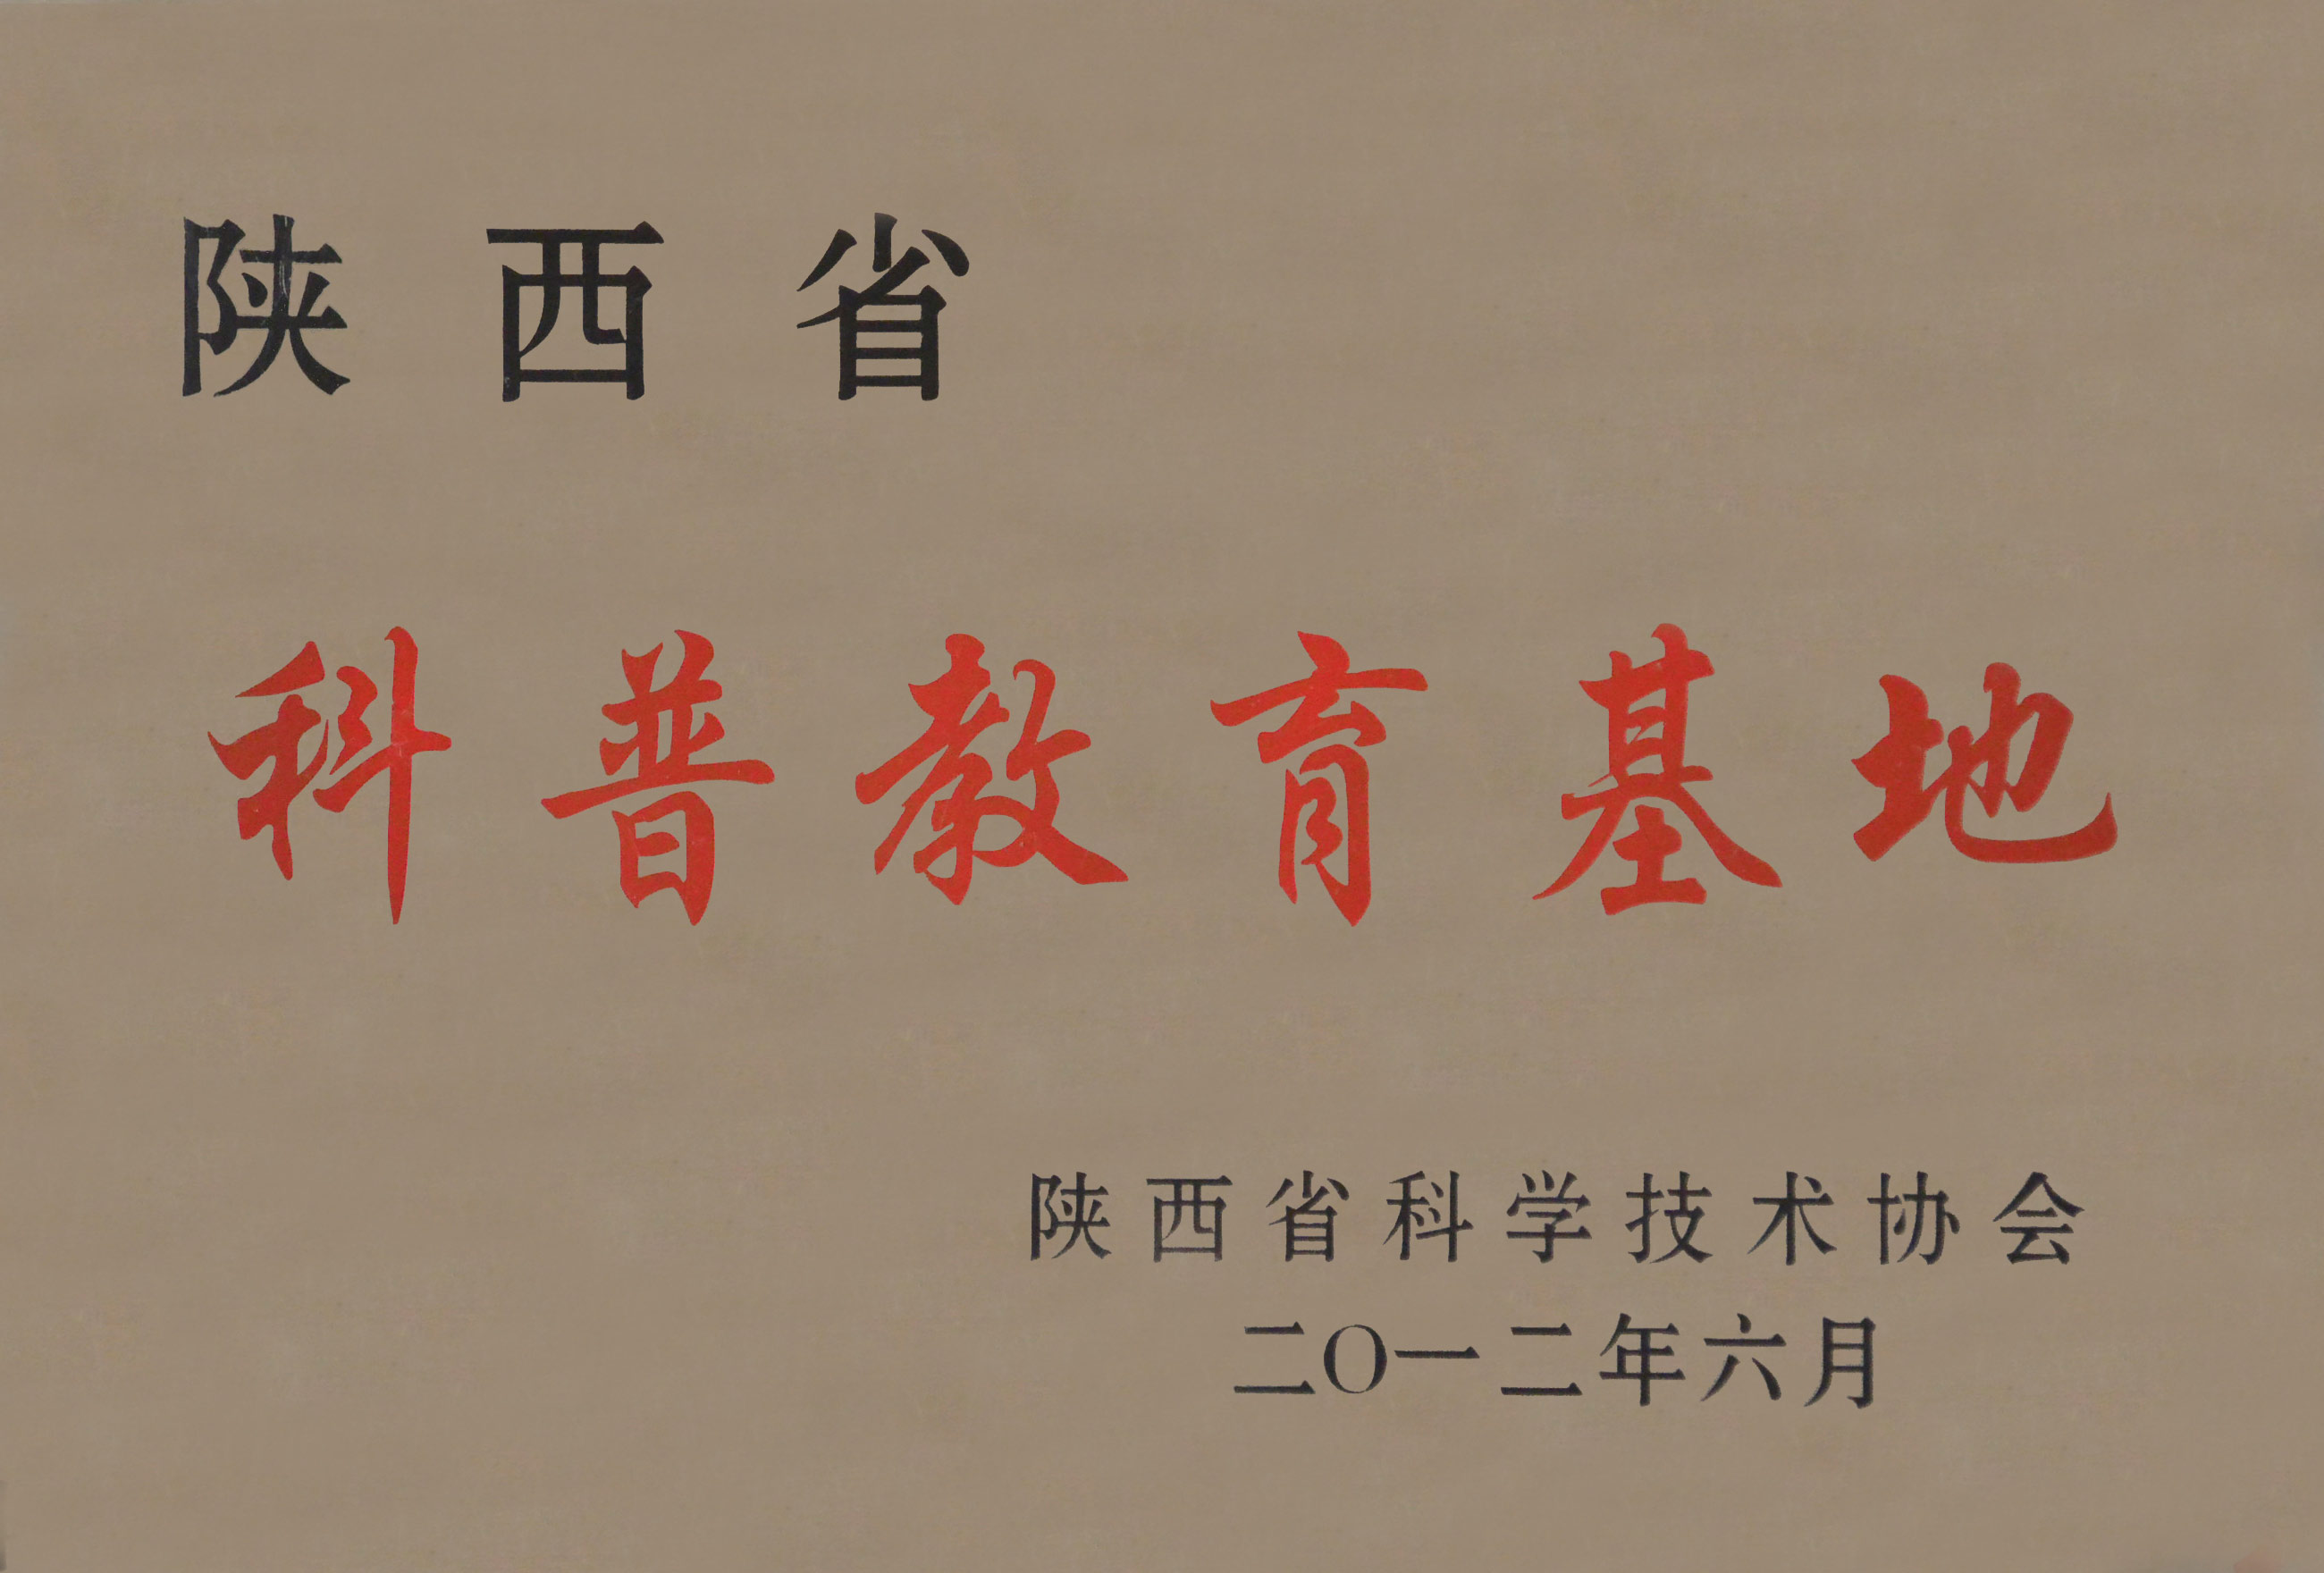 陕西省
科普教育基地
陕西省科学技术协会
二〇一二年六月